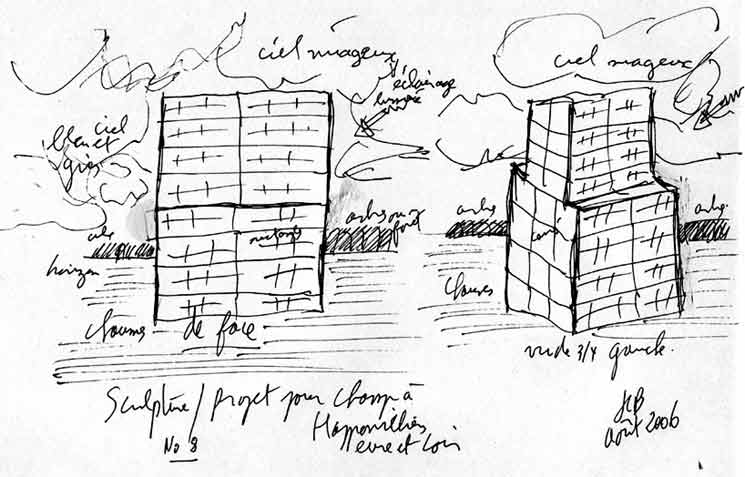 ciel nuageux
éclairage
lumière
ciel
bleu et
gris
arbres ou
forêt
horizon
rectangle
chaumes
de face
ciel nuageux
arbres
carré
arbres
chaumes
vu de 3/4 gauche.
Sculpture / projet pour champ à
Happonvilliers
eure et Loir
No 8
août 2006